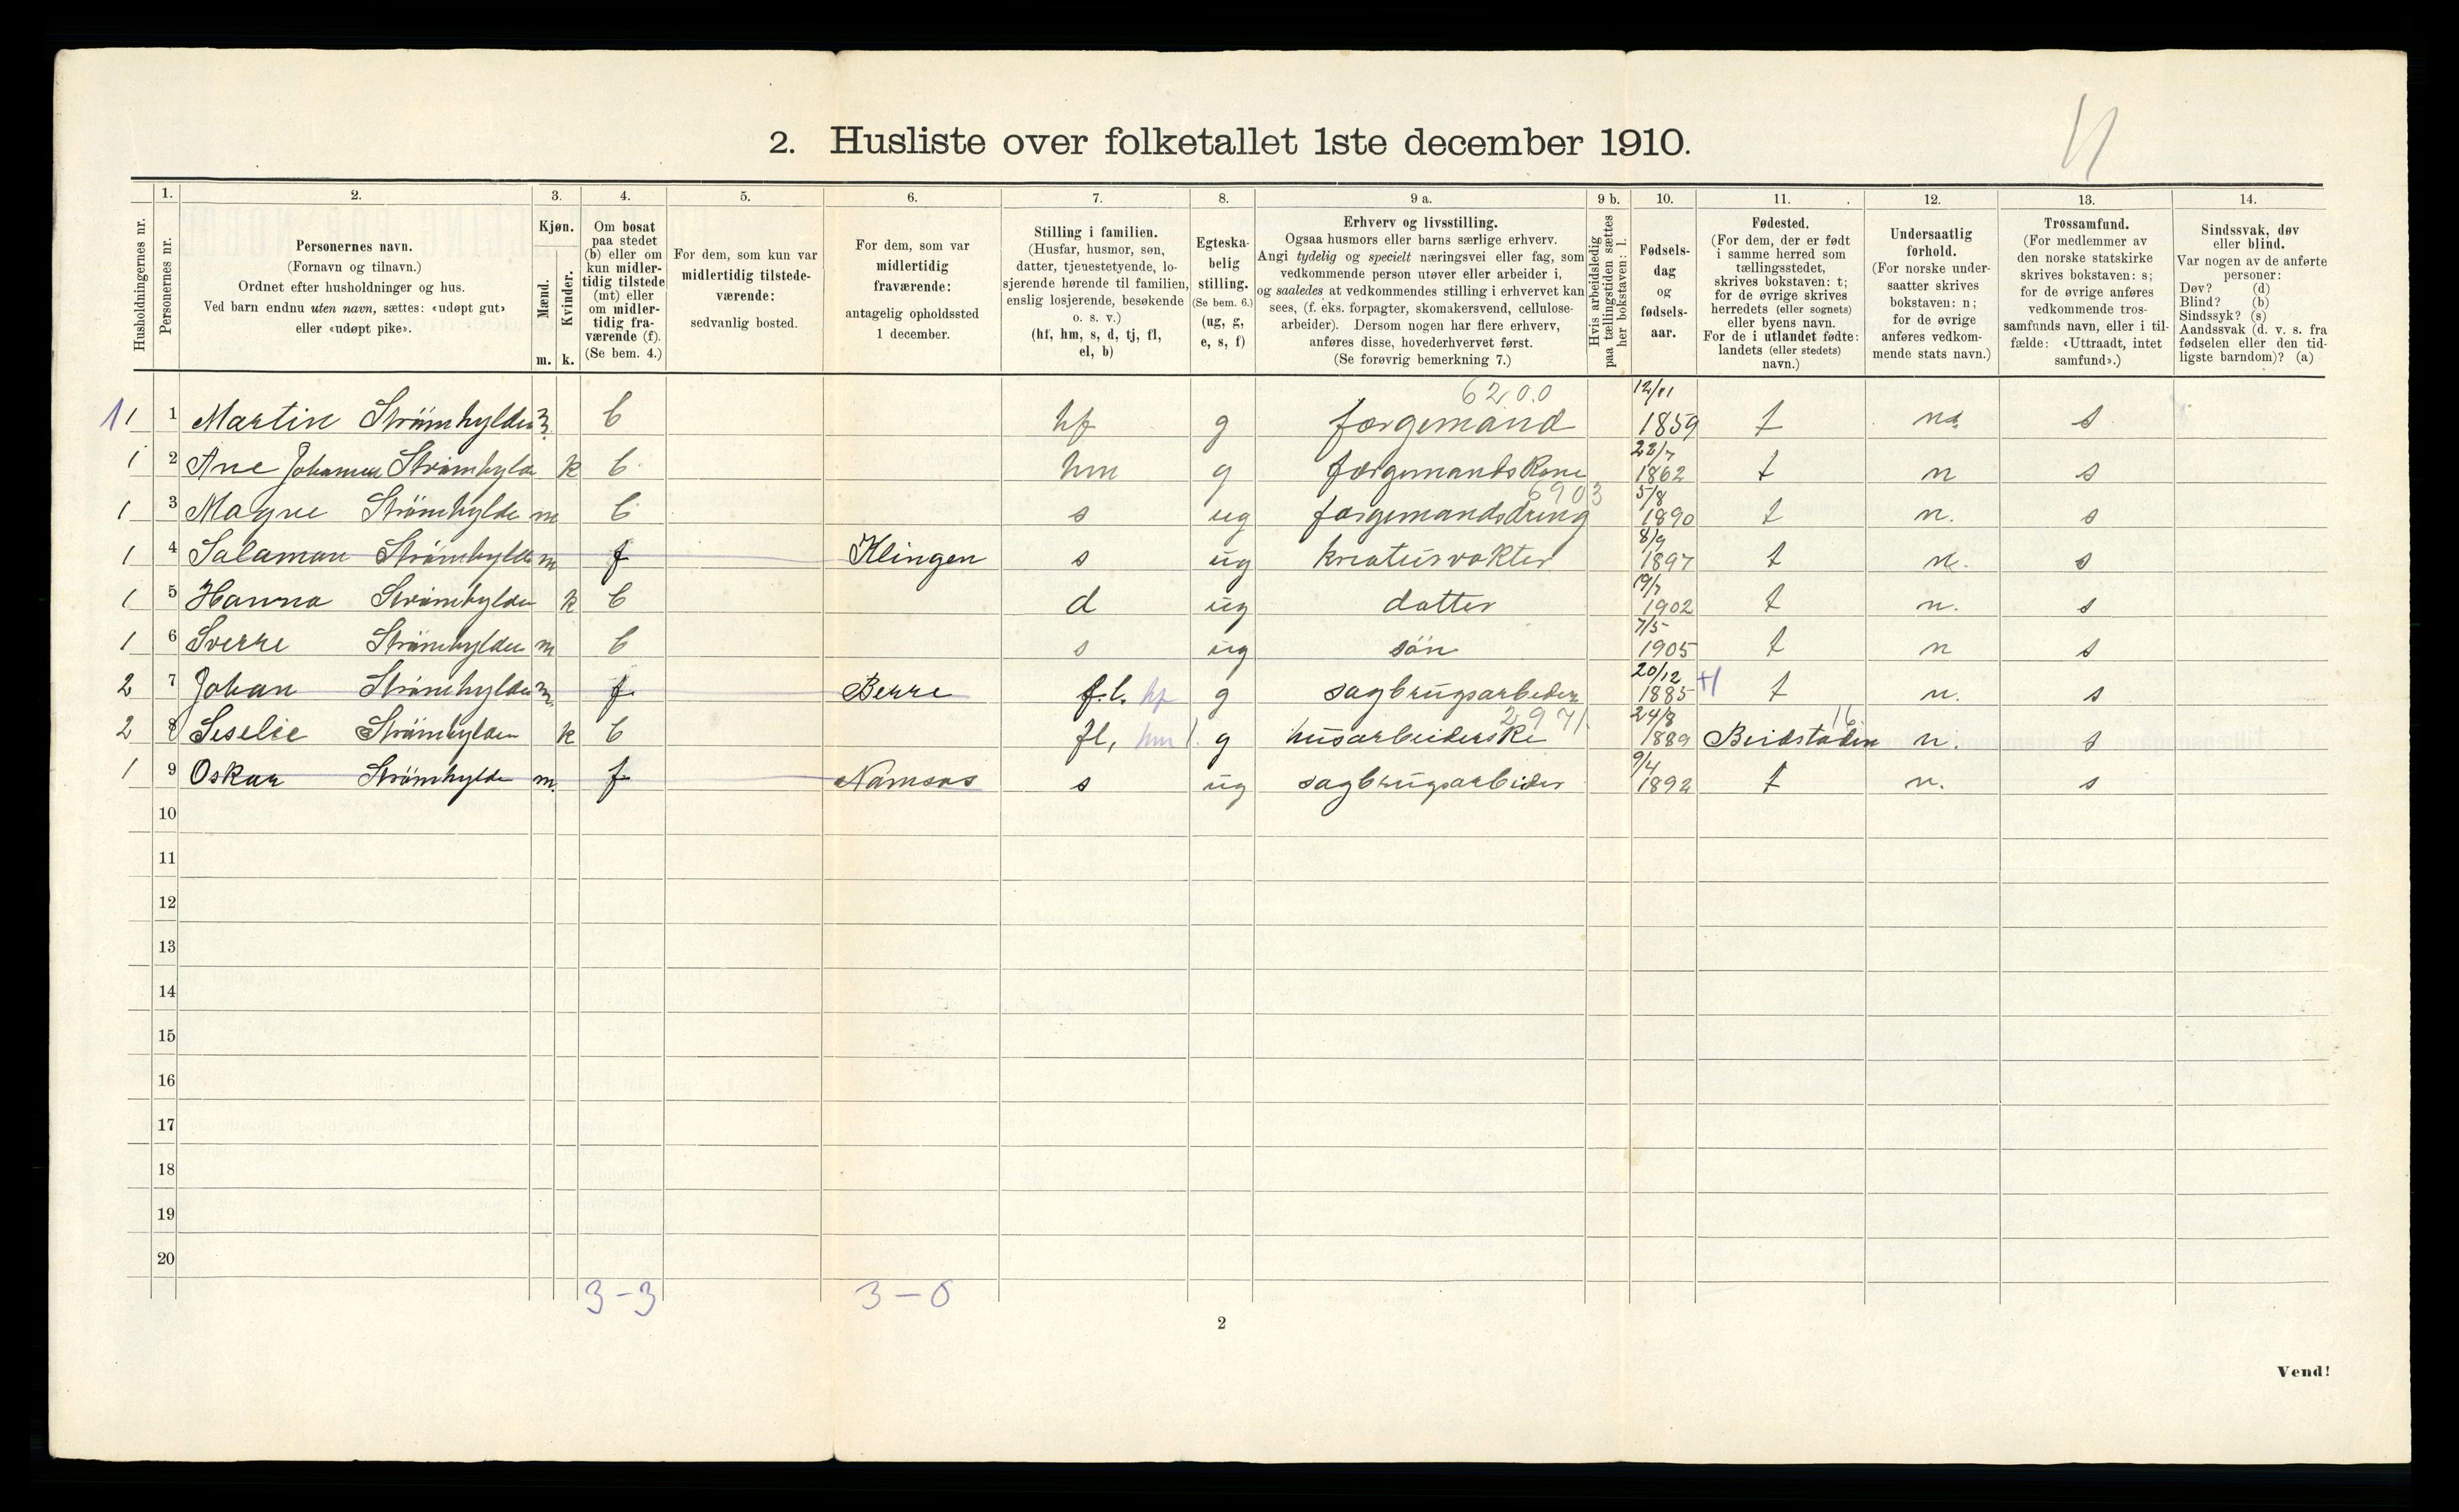 2. Husliste over folketallet 1ste december 1910.
Husholdningernes nr.
1.
Personernes nr.
2.
Personernes navn.
(Fornavn og tilnavn.)
Ordnet efter husholdninger og hus.
Ved barn endnu uten navn, sættes: «udøpt gut»
eller «udøpt pike».
3.
Kjøn.
Mænd.
Kvinder.
m. k.
4.
Om bosat
paa stedet
(b) eller om
kun midler-
tidig tilstede
(mt) eller
om midler-
tidig fra-
værende (f).
(Se bem. 4.)
5.
For dem, som kun var
midlertidig tilstede-
værende:
sedvanlig bosted.
6.
For dem, som var
midlertidig
fraværende:
antagelig opholdssted
1 december.
7.
Stilling i familien.
(Husfar, husmor, søn,
datter, tjenestetyende, lo-
sjerende hørende til familien,
enslig losjerende, besøkende
o. s. v.)
(hf, hm, s, d, tj, fl,
el, b)
8.
Egteska-
belig
stilling.
(Se bem. 6.)
(ug, g,
e, s, f)
9 a.
Erhverv og livsstilling.
Ogsaa husmors eller barns særlige erhverv.
Angi tydelig og specielt næringsvei eller fag, som
vedkommende person utøver eller arbeider i,
og saaledes at vedkommendes stilling i erhvervet kan
sees, (f. eks. forpagter, skomakersvend, cellulose-
arbeider). Dersom nogen har flere erhverv,
anføres disse, hovederhvervet først.
(Se forøvrig bemerkning 7.)
9 b.
Hvis arbeidsledig
paa tællingstiden sættes
her bokstaven: l.
10.
Fødsels-
dag
og
fødsels-
aar.
11.
Fødested.
(For dem, der er født
i samme herred som
tællingsstedet,
skrives bokstaven: t;
for de øvrige skrives
herredets (eller sognets)
eller byens navn.
For de i utlandet fødte:
landets (eller stedets)
navn.)
12.
Undersaatlig
forhold.
(For norske under-
saatter skrives
bokstaven: n;
for de øvrige
anføres vedkom-
mende stats navn.)
13.
Trossamfund.
(For medlemmer av
den norske statskirke
skrives bokstaven: s;
for de øvrige anføres
vedkommende tros-
samfunds navn, eller i til-
fælde: «Uttraadt, intet
samfund».)
14.
Sindssvak, døv
eller blind.
Var nogen av de anførte
personer:
Døv? (d)
Blind? (b)
Sindssyk? (s)
Aandssvak (d. v. s. fra
fødselen eller den tid-
ligste barndom)? (a)
6200
1 1 1 Martin Strömhylden b hf g færgemand 12/11 1859 t n s
1 2 Ane Johanna Strömhylde k b hm g færgemandskone 22/7 1862 t n s
6903
1 3 Magne Strömhylde m b s ug færgemandsdreng 5/8 1890 t n. s
1 4 Salamon Strömhylde m f Klingen s ug kreatursvokter 8/9 1897 t n. s
1 5 Hanna Strömhylden k b d ug datter 19/7 1902 t n. s
1 6 Sverre Strömhylden m b s ug sön 7/5 1905 t n s
2 7 Johan Strömhylden m f. Berre f.l. hf g sagbrugsarbeider 20/12 1885 t n. s
2971 16
2 8 Seselie Strömhylden k b fl, hm g husarbeiderske 24/8 1889 Beidstaden n. s
1 9 Oskar Strömhylde m. f Namsos s ug sagbrugsarbeider 9/4 1892 t n. s
10
11
12
13
14
15
16
17
18
19
20
3-3 3-0
2
Vend!